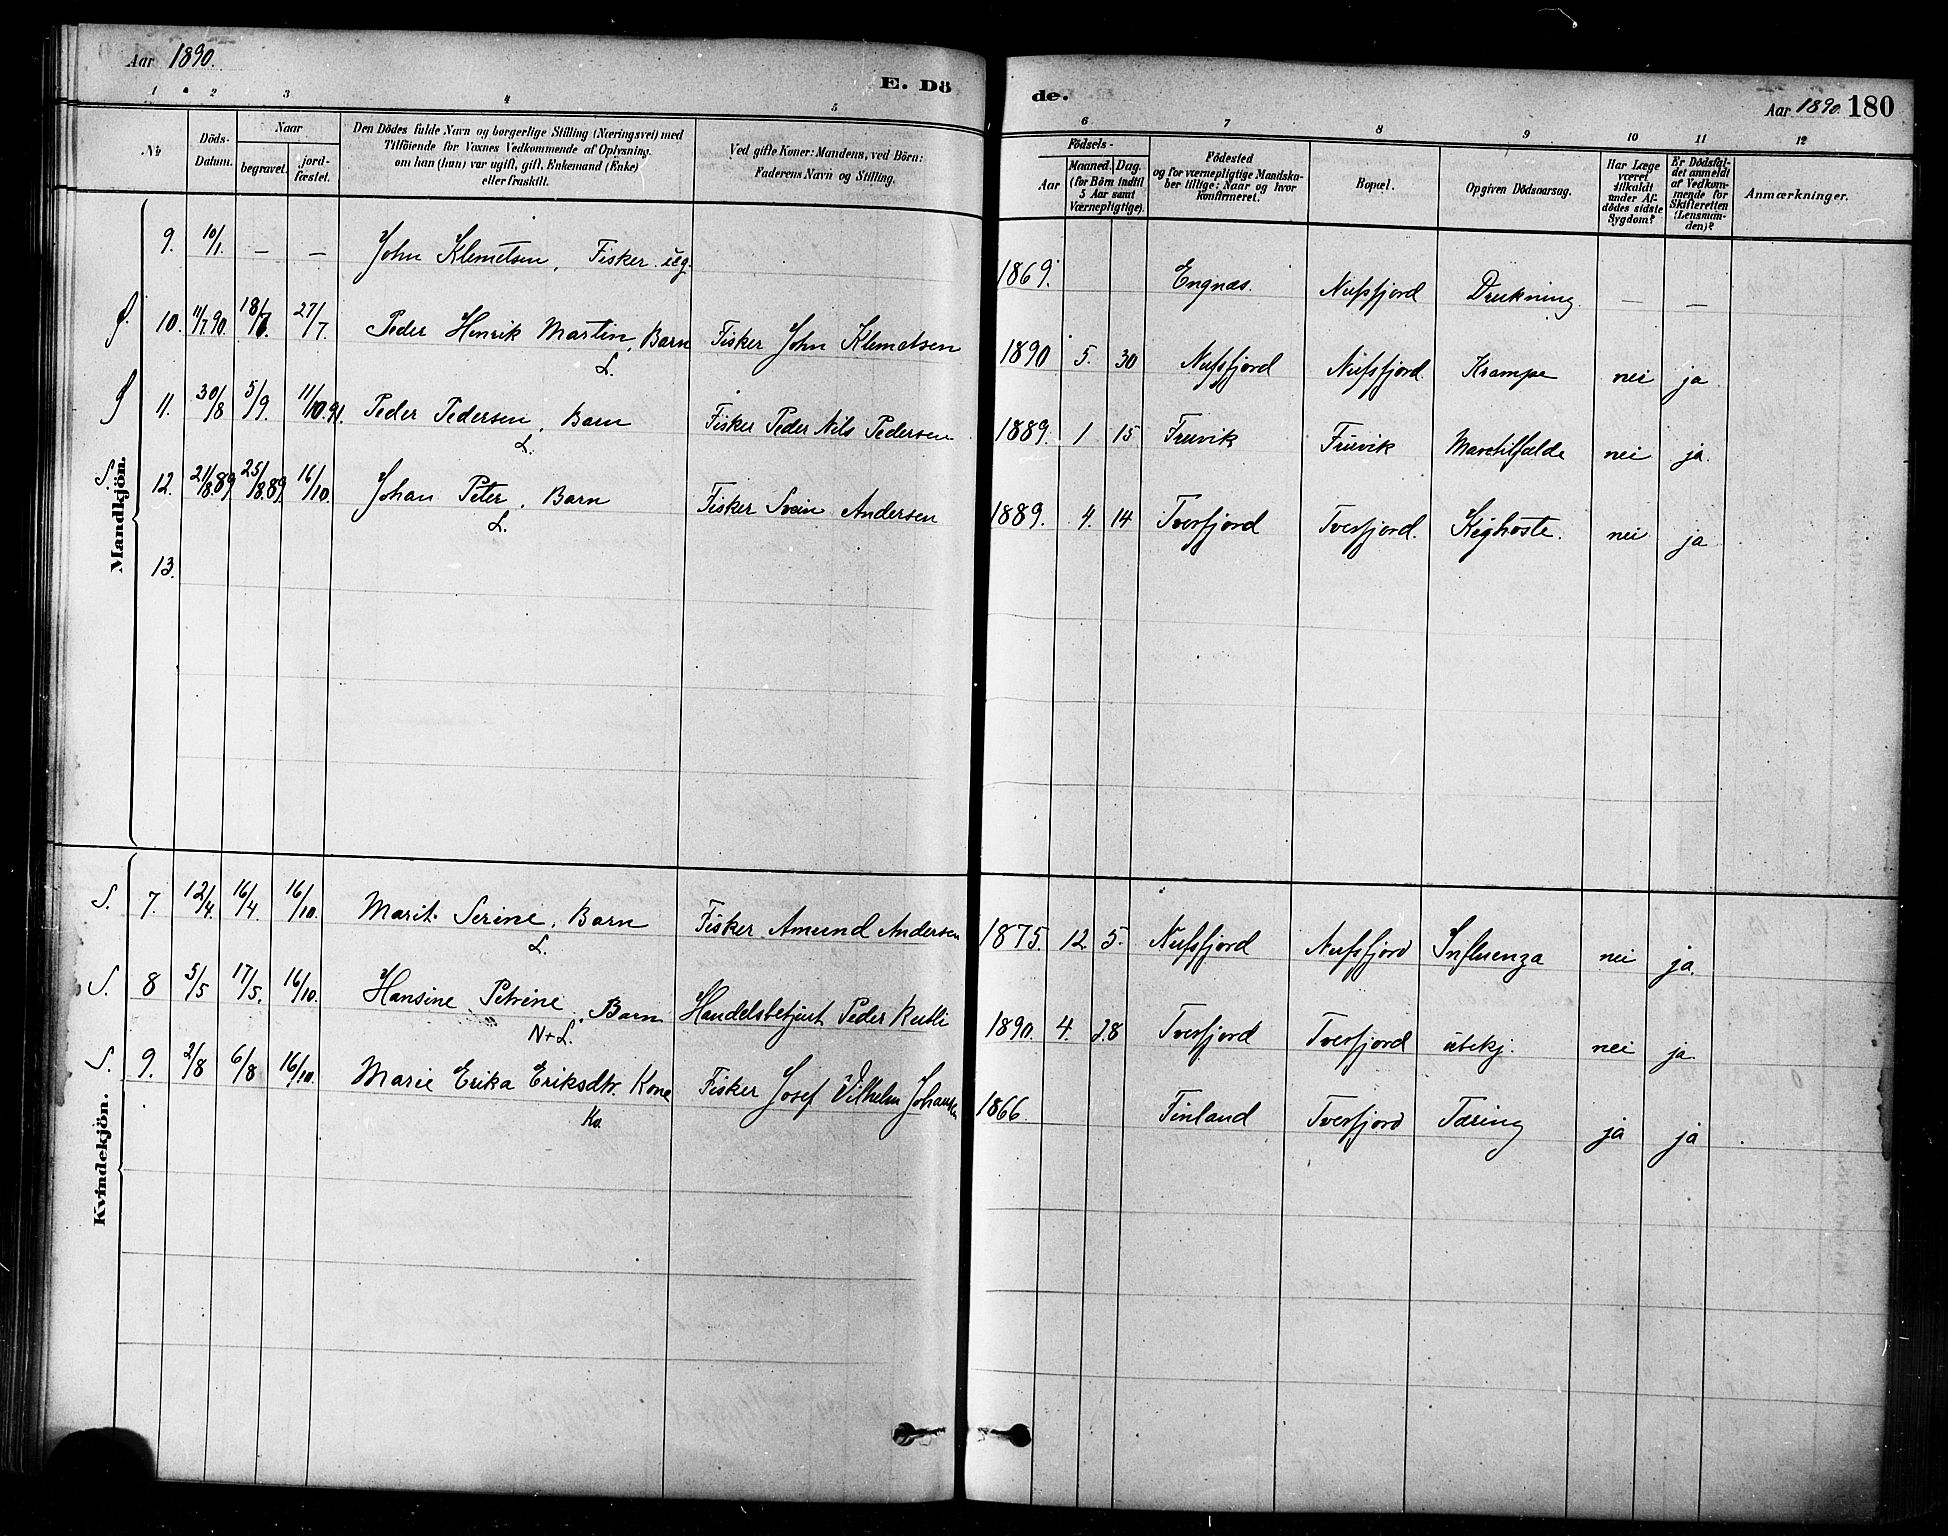 Aar 1890.
E. Dö
1 2 3 4 5
Nr
Döds-Datum.
Naar
begravet.
jord-fæstet.
Den Dödes fulde Navn og borgerlige Stilling (Næringsvei) med
Tilföiende for Voxnes Vedkommende af Oplysning,
om han (hun) var ugift, gift, Enkemand (Enke)
eller fraskilt.
Ved gifte Koner: Mandens, ved Börn:
Faderens Navn og Stilling.
Mandkjön.
9. 10/1. — — John Klemetsen, Fisker. ug.
10. 11/7 90. 27/7 Peder Henrik Martin, Barn Fisker John Klemetsen
L.
11. 30/8 5/9. 11/10.91. Peder Pedersen, Barn Fisker Peder Nils Pedersen
L.
S. 12. 21/8.89 25/8.89. 16/10. Johan Peter, Barn Fisker Svein Andersen
L.
13.
Kvindekjön.
S. 7. 12/4. 16/4 16/10. Marit Serine, Barn Fisker Amund Andersen
L.
S. 8 5/5 17/5. 16/10. Hansine Petrine, Barn Handelsbetjent Peder
N+L.
S. 9. 2/8 6/8 16/10. Marie Erika Eriksdtr. Kone Fisker Josef Vilhelm Johansen
Ko.
de.
Aar 1890. 180
6 7 8 9 10 11 12
Födsels-
Aar
Maaned. Dag.
(for Börn indtil
5 Aar samt
Værnepligtige).
Födested
og for værnepligtige Mandska-
ber tillige: Naar og hvor
konfirmeret.
Bopæl.
Opgiven Dödsaarsag.
Har Læge
været
tilkaldt
under Af-
dödes sidste
Sygdom?
Er Dödsfal-
det anmeldt
af Vedkom-
mende for
Skifteretten
(Lensman-
den)?
Anmærkninger.
1869. Engnæs. Nufsfjord Drukning — —
1890 5. 30 Nufsfjord Nufsfjord Krampe nei ja
1889. 1 15 Fruvik Fruvik Mavetilfælde nei ja.
1889. 4. 14 Tverfjord Tverfjord. Kighoste. nei ja
1875. 12. 5. Nufsfjord Nufsfjord Influenza nei ja.
1890. 4. 28 Tverfjord Tverfjord ubekj. nei ja
1866. Finland Tverfjord Tæring ja ja